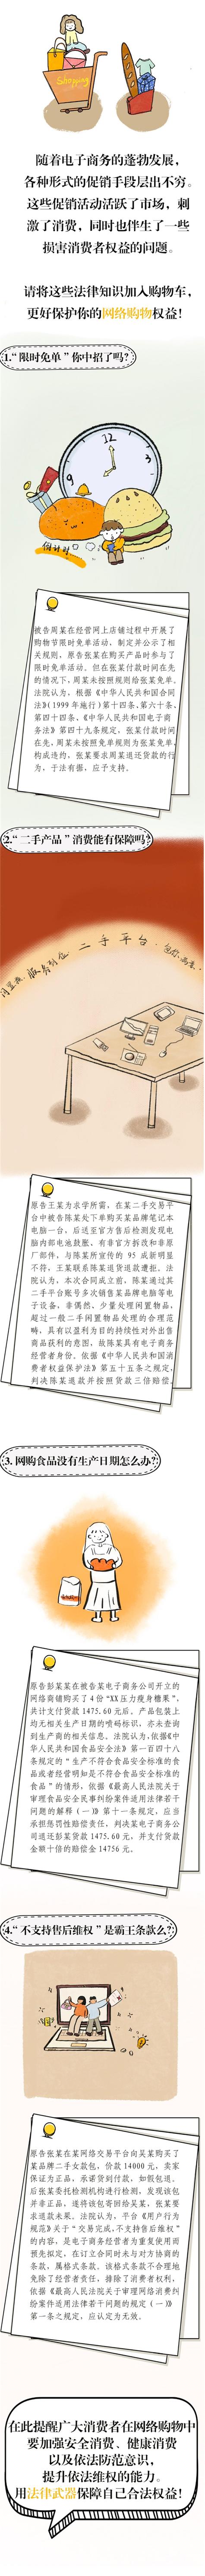 Shopping
随着电子商务的蓬勃发展，
各种形式的促销手段层出不穷。
这些促销活动活跃了市场，刺
激了消费，同时也伴生了一些
损害消费者权益的问题。
请将这些法律知识加入购物车，
更好保护你的网络购物权益！
1.“限时免单”你中招了吗？
12
3
6
9
倒计时
被告周某在经营网上店铺过程中开展了
购物节限时免单活动，制定并公示了相
关规则，原告张某在购买产品时参与了
限时免单活动。但在张某付款时间在先
的情况下，周某未按照规则给张某免单。
法院认为，根据《中华人民共和国合同
法》（1999年施行）第十四条、第六十条、
第四十四条，《中华人民共和国电子商
务法》第四十九条规定，张某付款时间
在先，周某未按照免单规则为张某免单，
构成违约，张某要求周某退还货款的行
为，于法有据，应予支持。
2.“二手产品”消费能有保障吗？
服务到位 二手平台
原告王某为求学所需，在某二手交易平
台中被告陈某处下单购买某品牌笔记本
电脑一台，后送至官方售后检测发现电
脑内部电池鼓胀、有非官方拆改和非原
厂部件，与陈某所宣传的95成新明显
不符，王某联系陈某退货退款遭拒。法
院认为，本次合同成立前，陈某通过其
二手平台账号多次销售某品牌电脑等电
子设备，非偶然、少量处理闲置物品，
超过一般二手闲置物品处理的合理范
畴，具有以盈利为目的持续性对外出售
商品获利的意图，故陈某具有电子商务
经营者身份。依据《中华人民共和国消
费者权益保护法》第五十五条之规定，
判决陈某退款并按照货款三倍赔偿。
3. 网购食品没有生产日期怎么办？
原告彭某某在被告某电子商务公司开立的
网络商铺购买了4份“XX压力瘦身糖果”，
共计支付货款1475.60元后，产品包装上
均无相关生产日期的喷码标识，亦未查询
到生产商的相关信息。法院认为，依据《中
华人民共和国食品安全法》第一百四十八
条规定的“生产不符合食品安全标准的食
品或者经营明知是不符合食品安全标准的
食品”的情形，依据《最高人民法院关于
审理食品安全民事纠纷案件适用法律若干
问题的解释（一）》第十一条规定，应当
承担惩罚性赔偿责任，判决某电子商务公
司退还彭某货款1475.60元，并支付货款
金额十倍的赔偿金14756元。
4.“不支持售后维权”是霸王条款么？
原告张某在某网络交易平台向吴某购买了
某品牌二手女款包，价款14000元，卖家
保证为正品，承诺货到付款，如假包退。
后张某委托检测机构进行检测，发现该包
并非正品，遂将该包寄回给吴某，张某要
求退款未果。法院认为，平台《用户行为
规范》关于“交易完成，不支持售后维权”
的内容，是电子商务经营者为重复使用而
预先拟定，在订立合同时未与对方协商的
条款，属格式条款。该格式条款不合理地
免除了经营者责任，排除了消费者权利，
依据《最高人民法院关于审理网络消费纠
纷案件适用法律若干问题的规定（一）》
第一条之规定，应认定为无效。
在此提醒广大消费者在网络购物中
要加强安全消费、健康消费
以及依法防范意识，
提升依法维权的能力。
用法律武器保障自己合法权益！